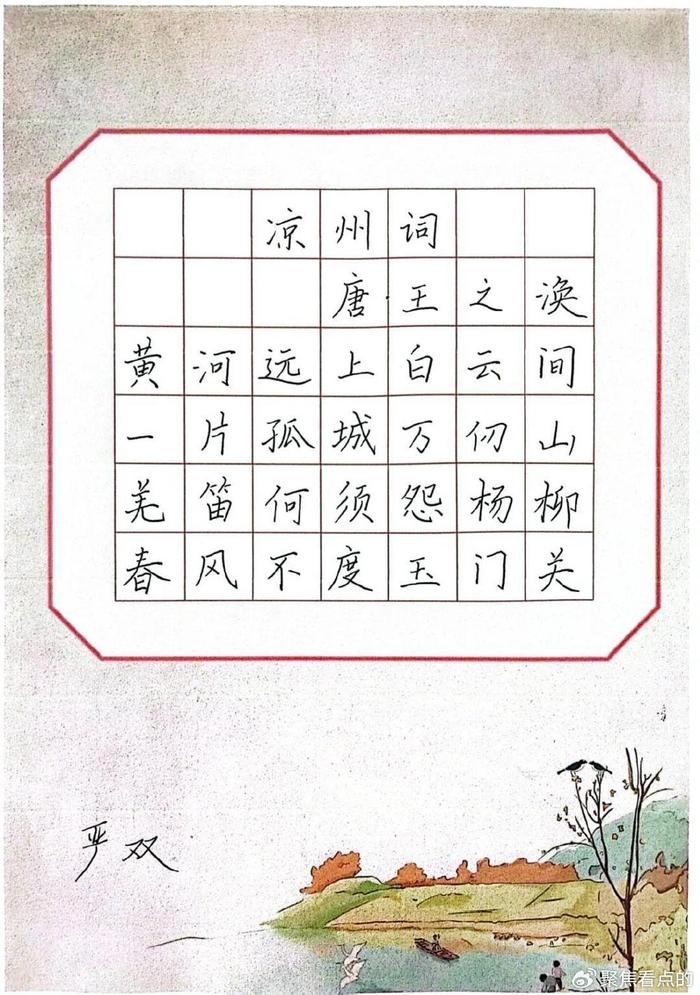 凉州词
唐·王之涣
黄河远上白云间
一片孤城万仞山
羌笛何须怨杨柳
春风不度玉门关
严双
聚焦看点的